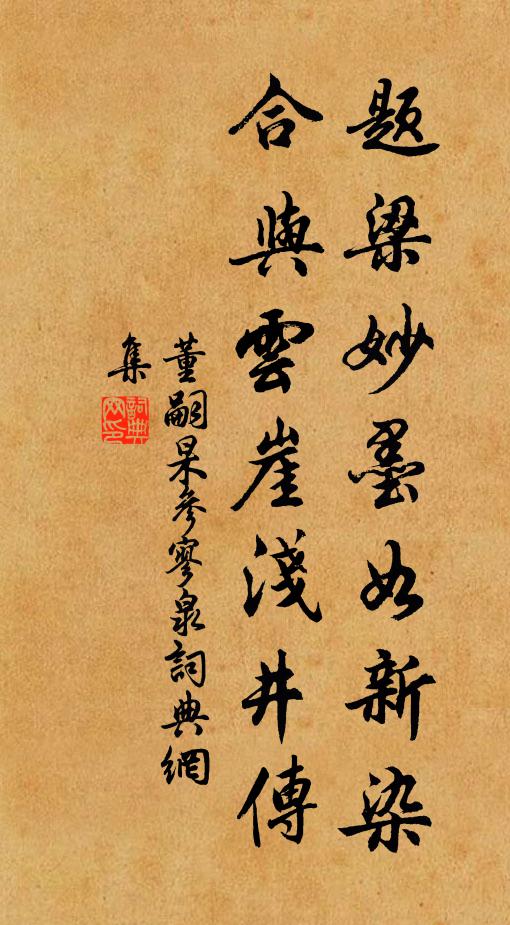 题梁妙墨如新染
合與雲崖淺井傳
董嗣杲參寥泉詞典網
集
詞典網印